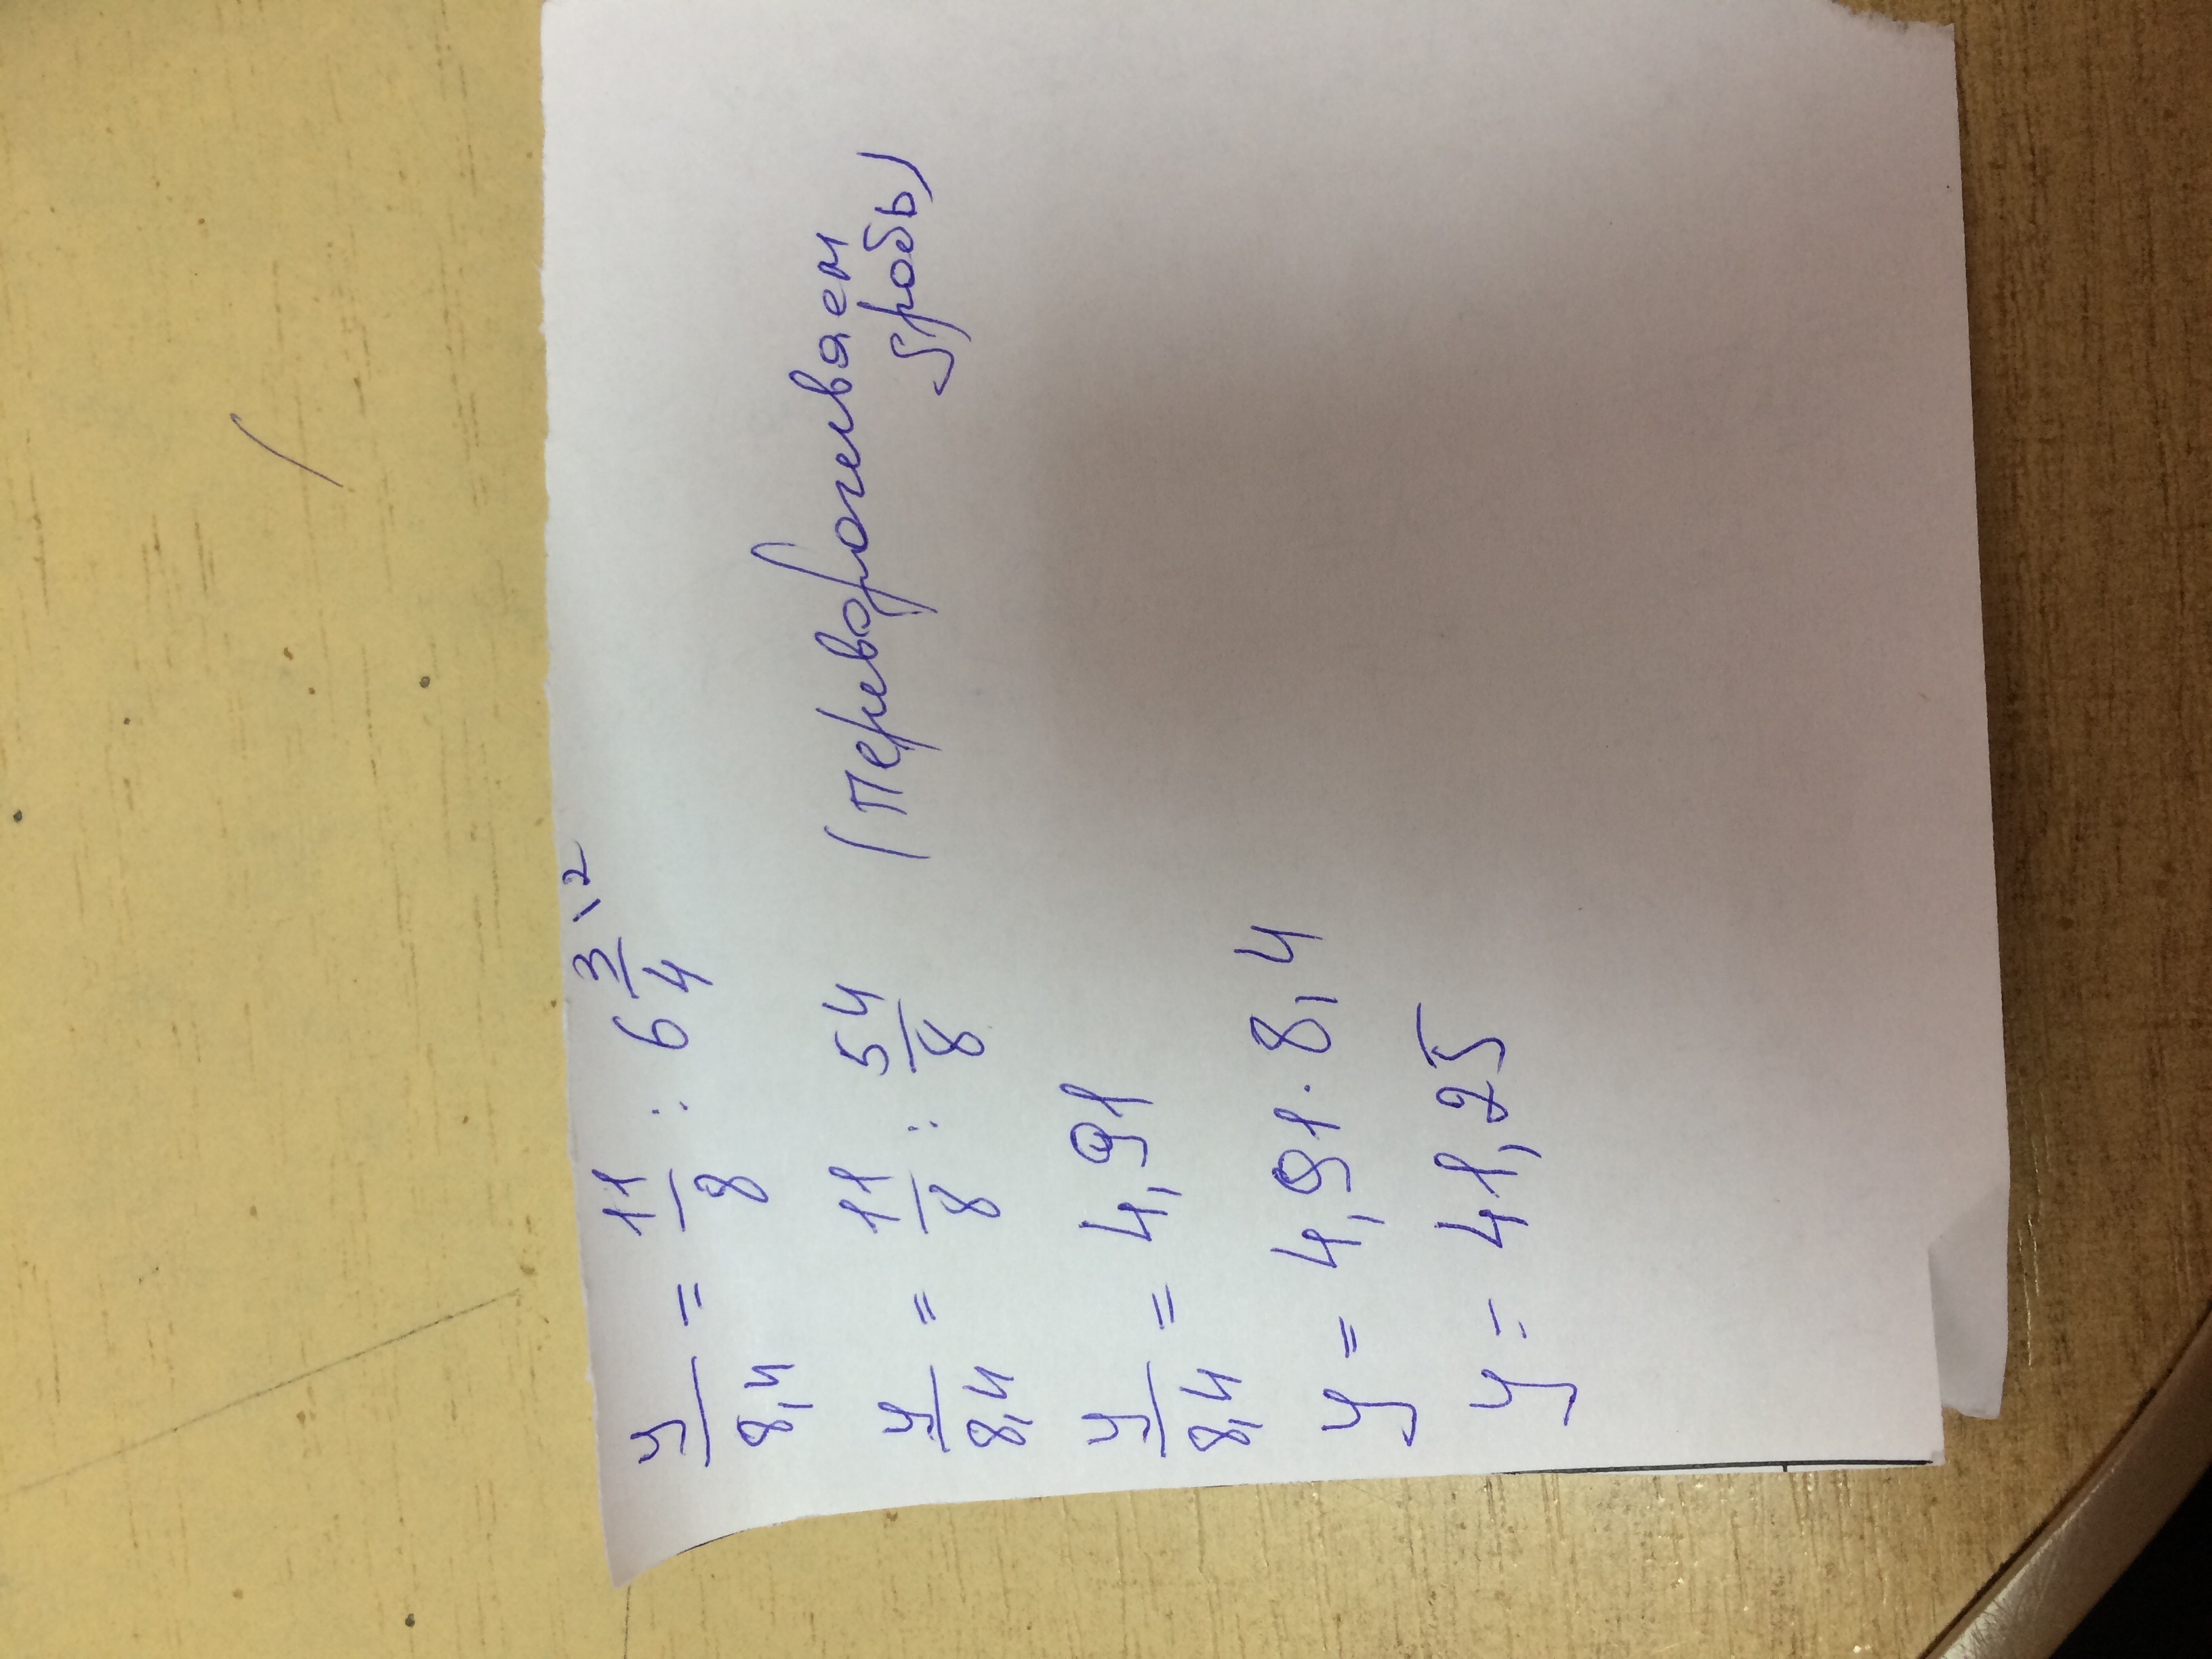 у/8,4 = 11/8 : 6 3/4 \2
у/8,4 = 11/8 : 54/8 (Переворачиваем дробь)
у/8,4 = 4,91
у = 4,91 · 8,4
у = 41,25